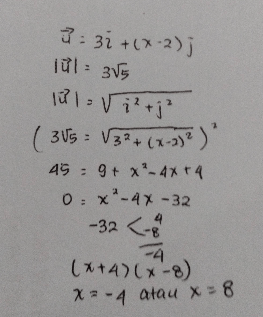 u⃗ = 3i + (x-2)j
|u⃗| = 3√5
|u⃗| = √(i² + j²)
(3√5 = √(3² + (x-2)²))²
45 = 9 + x² - 4x + 4
0 = x² - 4x - 32
-32 < 4
-8
-4
(x+4)(x-8)
x = -4 atau x = 8